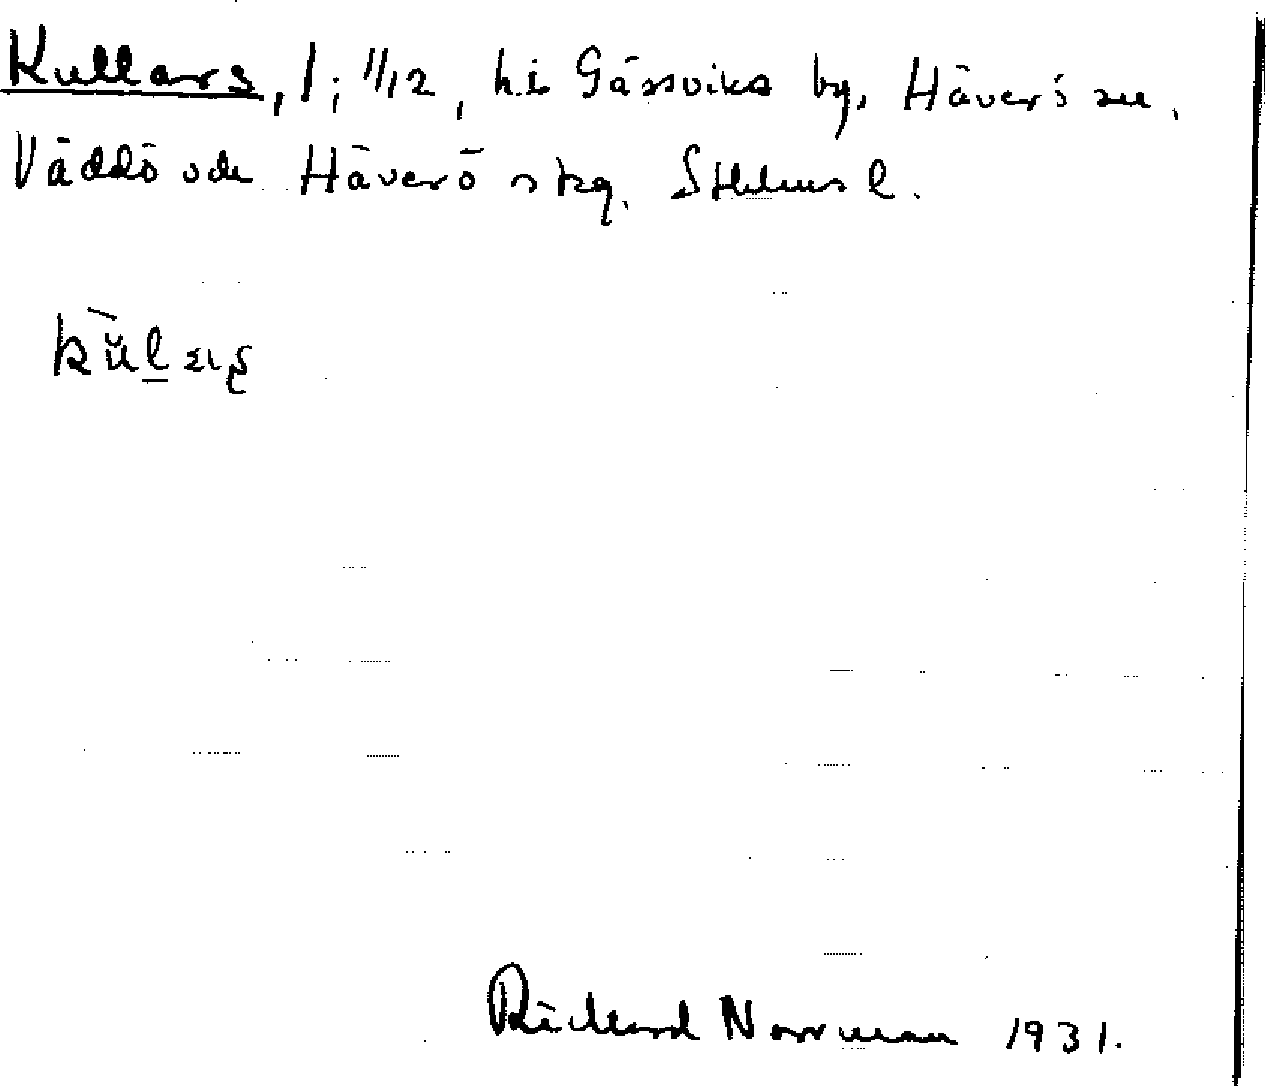 Kullars, 1; 11/12, h.i Gässviks by, Häverö sn,
Väddö och Häverö skg. Sthlms l.
Richard Norrman 1931.